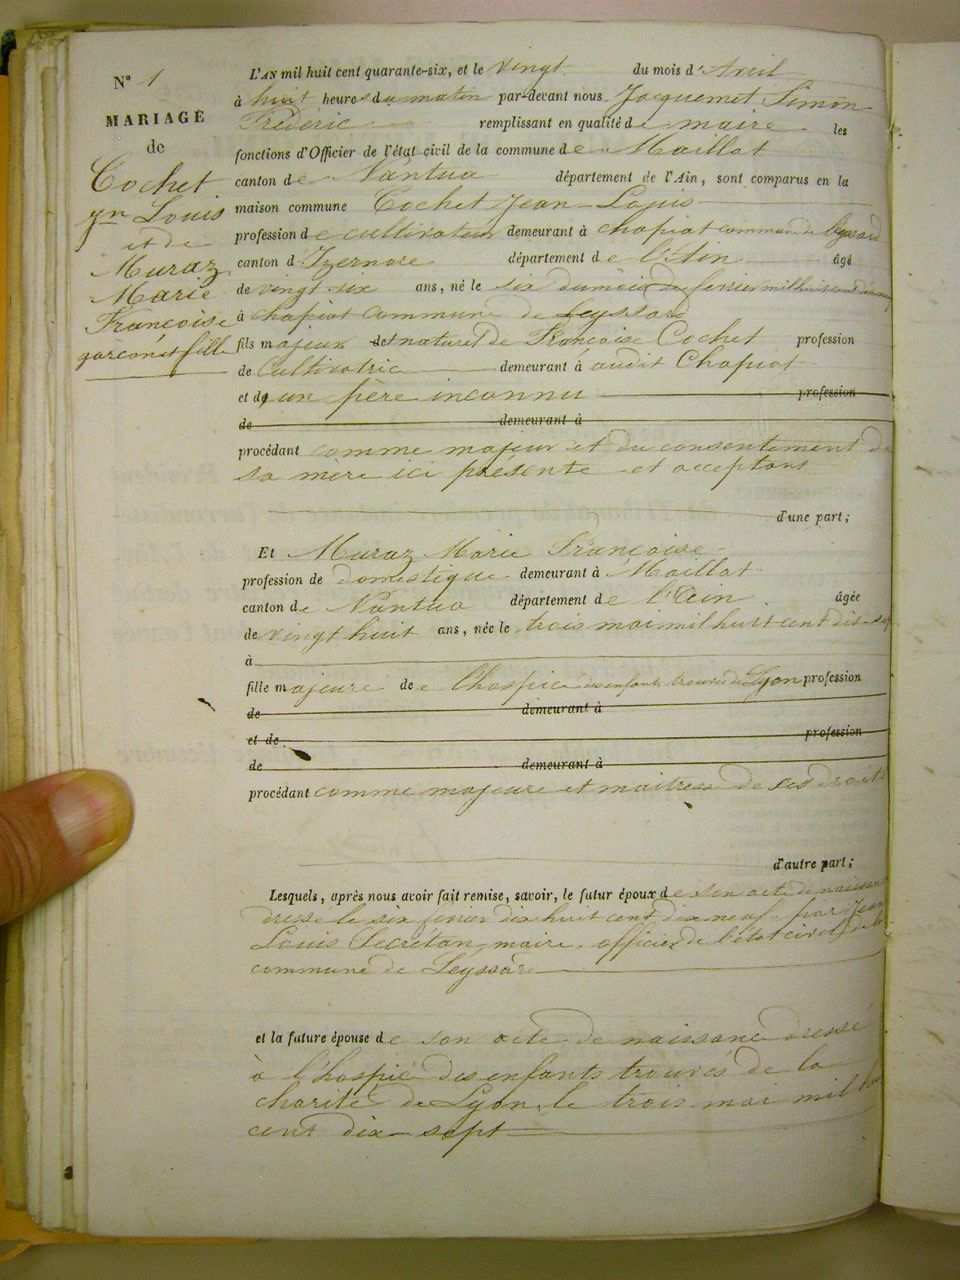 N° 1
MARIAGE
de
Cochet
jn Louis
et de
Muraz
Marie
Francoise
garcon et fille
L'AN mil huit cent quarante-six, et le vingt du mois d'Avril
à huit heures du matin par-devant nous Jacquemet Simon
Frederic remplissant en qualité de maire les
fonctions d'Officier de l'état civil de la commune de Maillat
canton de Nantua département de l'Ain, sont comparus en la
maison commune Cochet Jean Louis
profession de cultivateur demeurant à chapiat commune de leyssard
canton d'Izernore département de l'Ain âgé
de vingt six ans, né le six du mois de fevrier mil huit cent dix neuf
à chapiat commune de Leyssard
fils majeur et naturel de Francoise Cochet profession
de Cultivatric demeurant à audit Chapiat
et de un père inconnu profession
de demeurant à
procédant comme majeur et du consentement de
sa mere ici presente et acceptant
d'une part;
Et Muraz Marie Francoise
profession de domestique demeurant à Maillat
canton de Nantua département de l'Ain âgée
de vingt huit ans, née le trois mai mil huit cent dix-sept
à
fille majeure de l'hospice des enfants trouvés de Lyon profession
de demeurant à
et de profession
de demeurant à
procédant comme majeure et maitresse de ses droits
d'autre part;
Lesquels, après nous avoir fait remise, savoir, le futur époux de son acte de naissance
dressé le six fevrier dix huit cent dix neuf par Jean
Louis Secretan maire officier de l'état civil de la
commune de Leyssard
et la future épouse de son acte de naissance dressé
à l'hospice des enfants trouvés de la
charité de Lyon le trois mai mil huit
cent dix-sept